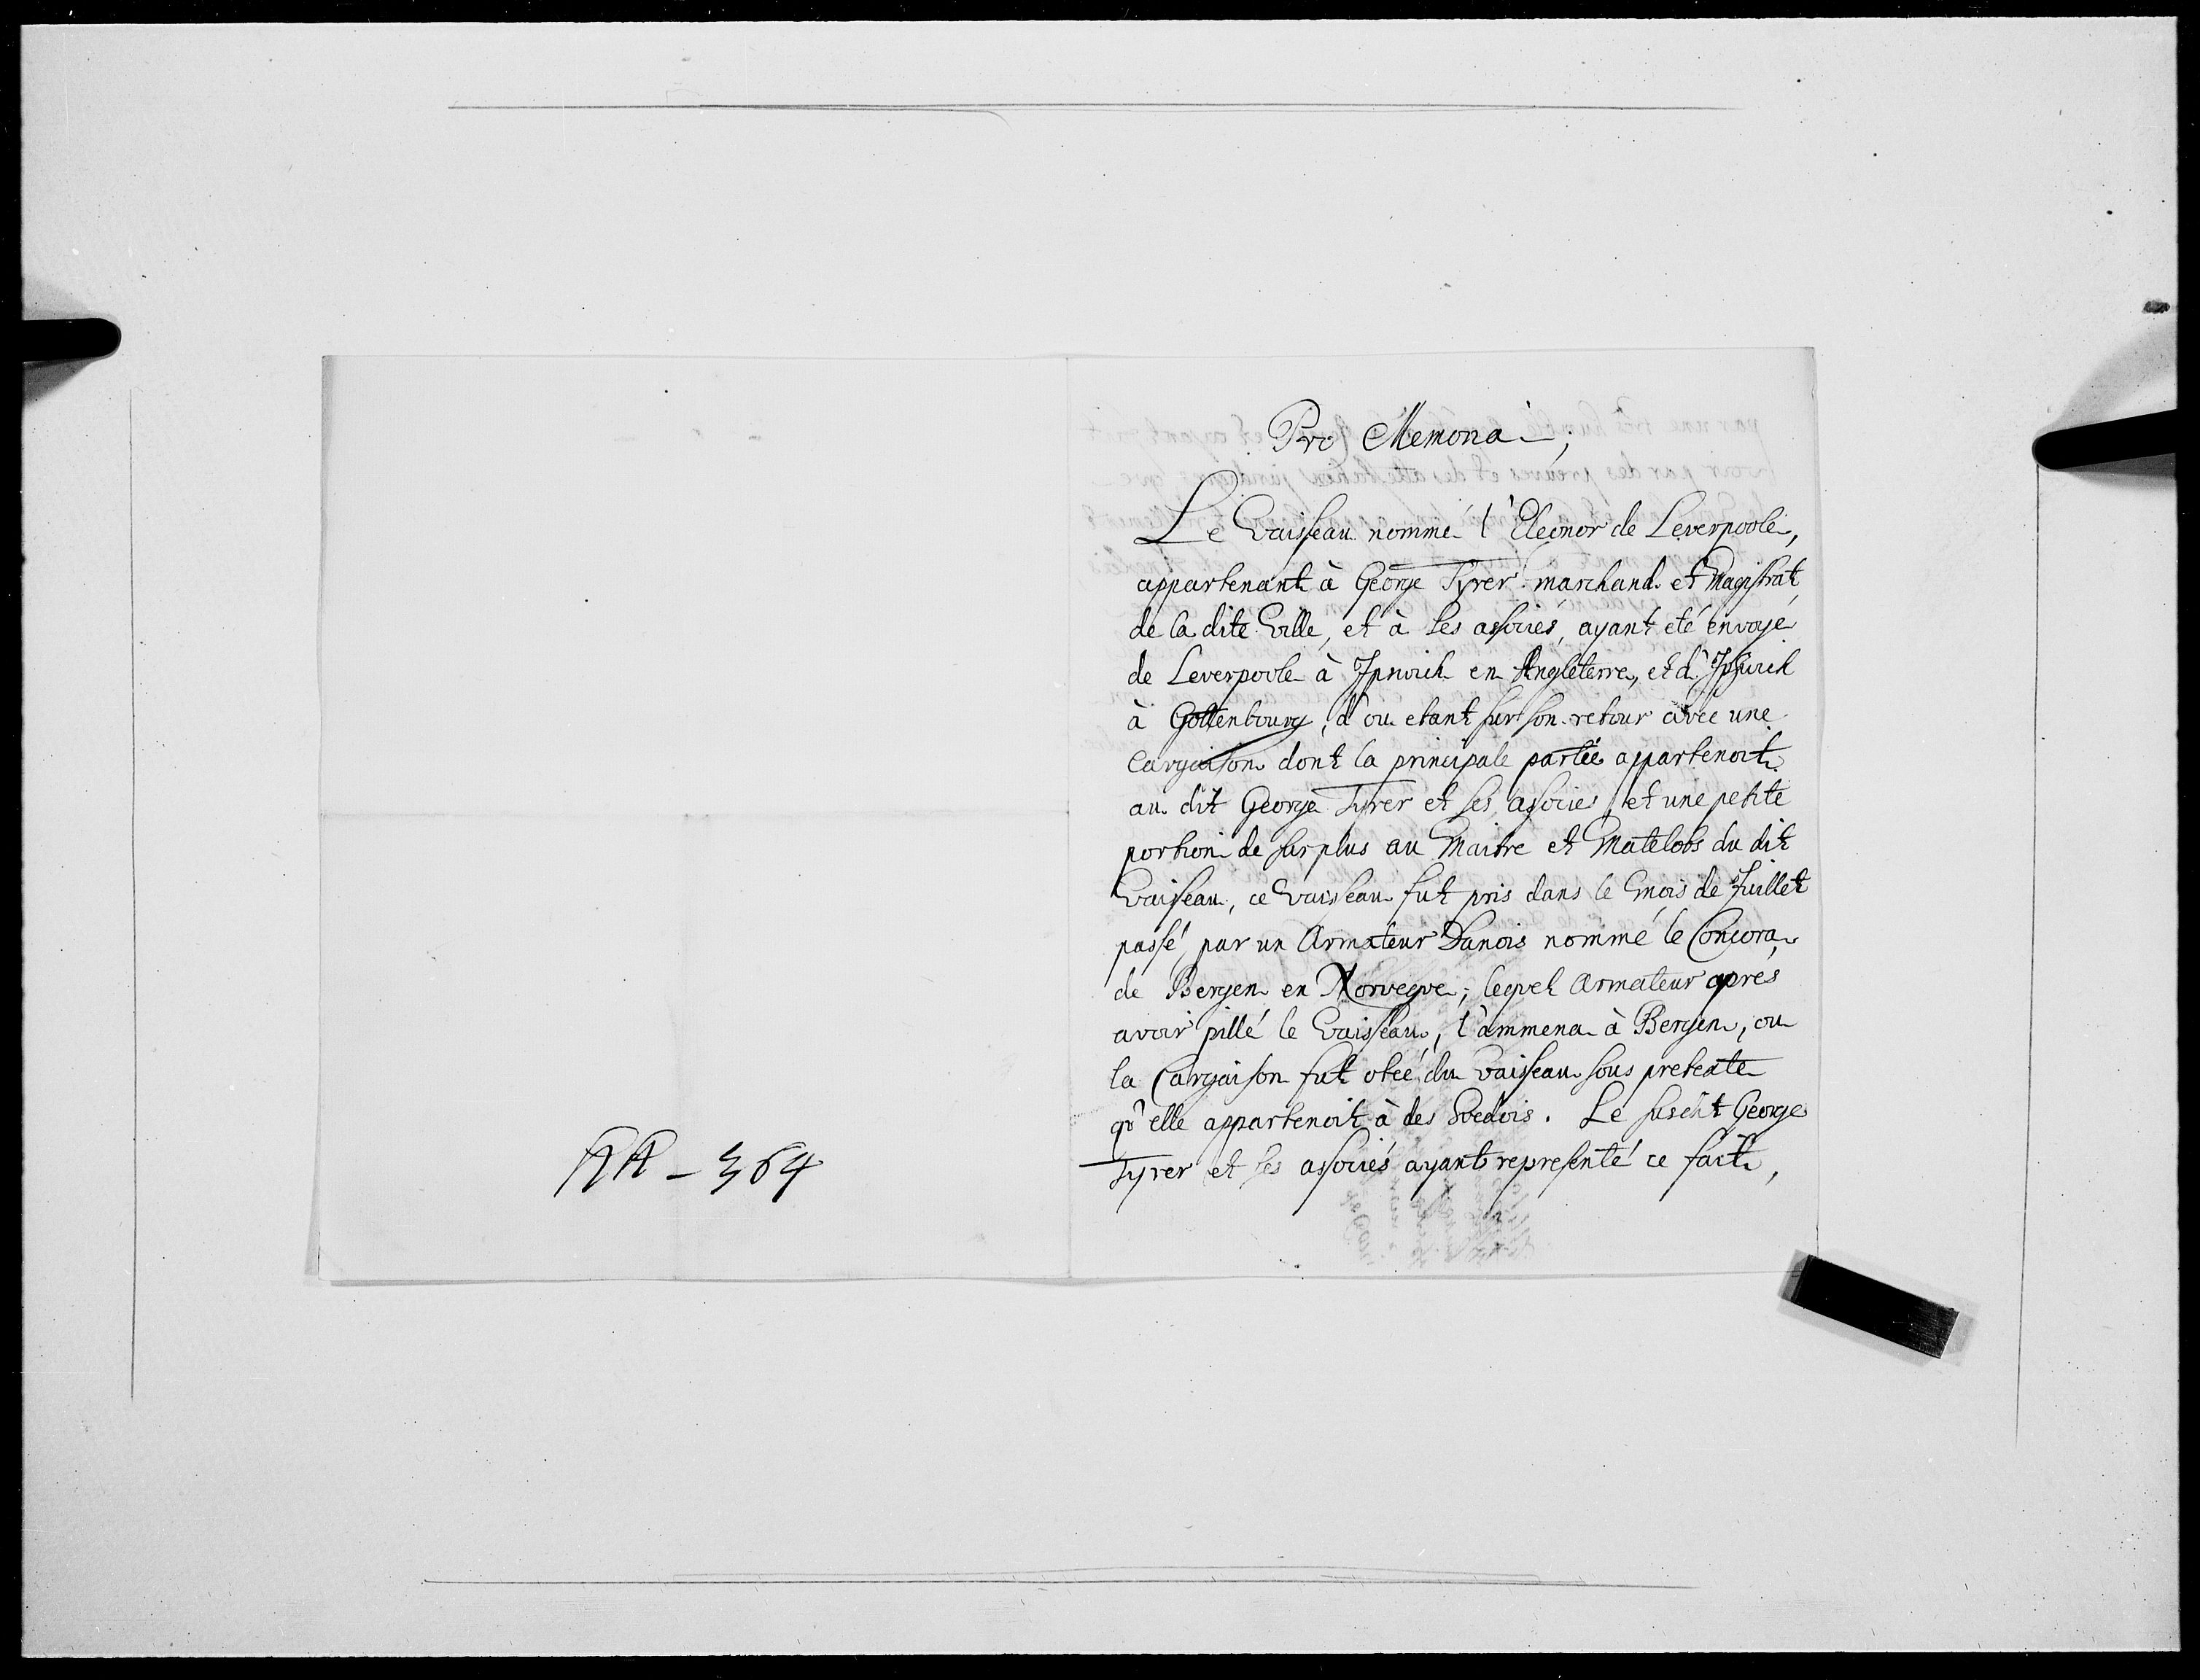 Pro Memoria,
Le Vaisseau nommé l'Eleonor de Leverpoole,
appartenant à George Tyrer marchand et Magistrat
de la dite Ville, et à ses associés, ayant eté envoyé
de Leverpoole à Ipswich en Angleterre, et d'Ipswich
à Gottenbourg, d'ou etant sur son retour avec une
Cargaison dont la principale partie appartenoit
au dit George Tyrer et ses associés, et une petite
portion de surplus au Maitre et Matelots du dit
Vaisseau, ce Vaisseau fut pris dans le Mois de Juillet
passé, par un Armateur Danois nommé le
de Bergen en Norvegve; leqvel Armateur après
avoir pillé le Vaisseau, l'ammena à Bergen, ou
la Cargaison fut otée du Vaisseau sous pretexte
qv'elle appartenoit à des Svedois. Le susdit George
Tyrer et ses associés ayant represénté ce fait,
AA - 364